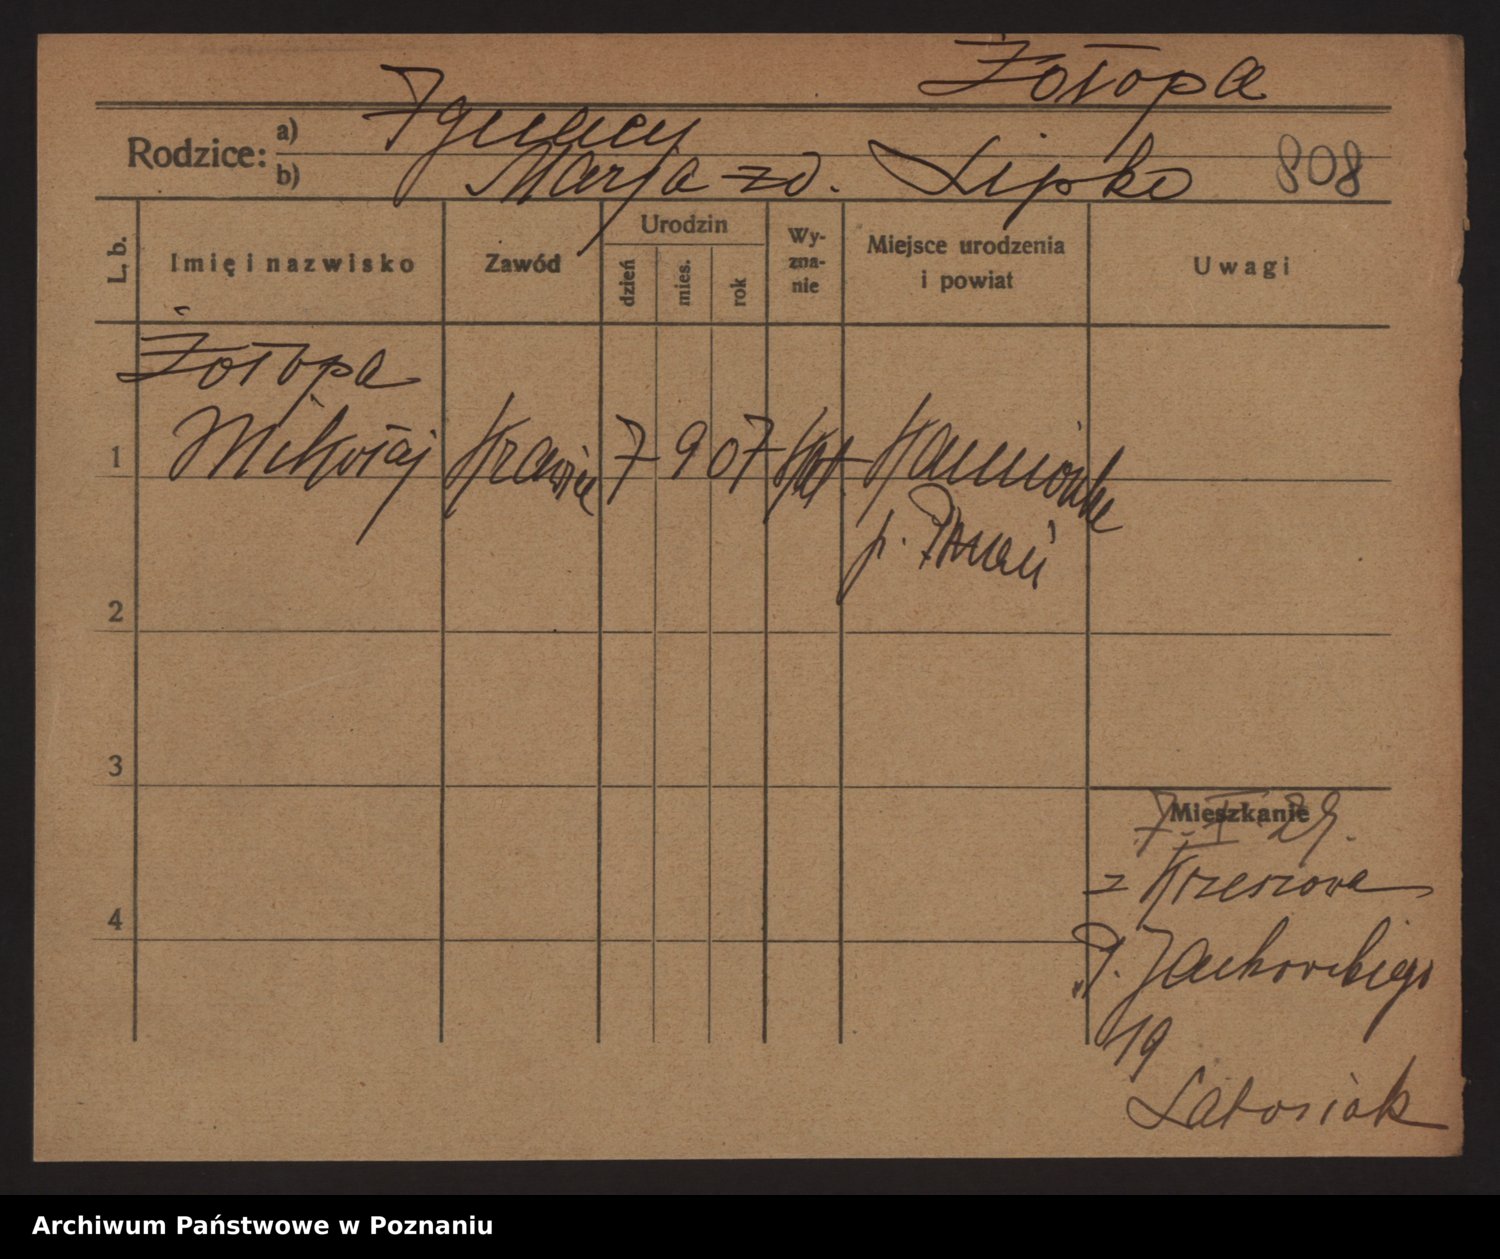 Żołopa
Rodzice:
a) Ignacy
b) Marja zd. Lipko
808
L. b.
Imię i nazwisko
Zawód
Urodzin
dzień
mies.
rok
Wy-
zna-
nie
Miejsce urodzenia
i powiat
Uwagi
Żołopa
1 Mikołaj krawiec 7 9 07 kat.
p.
2
3
4
Mieszkanie
7. I 29.
z Krzeszowa
P. Jackowskiego
19
Latosiak
Archiwum Państwowe w Poznaniu